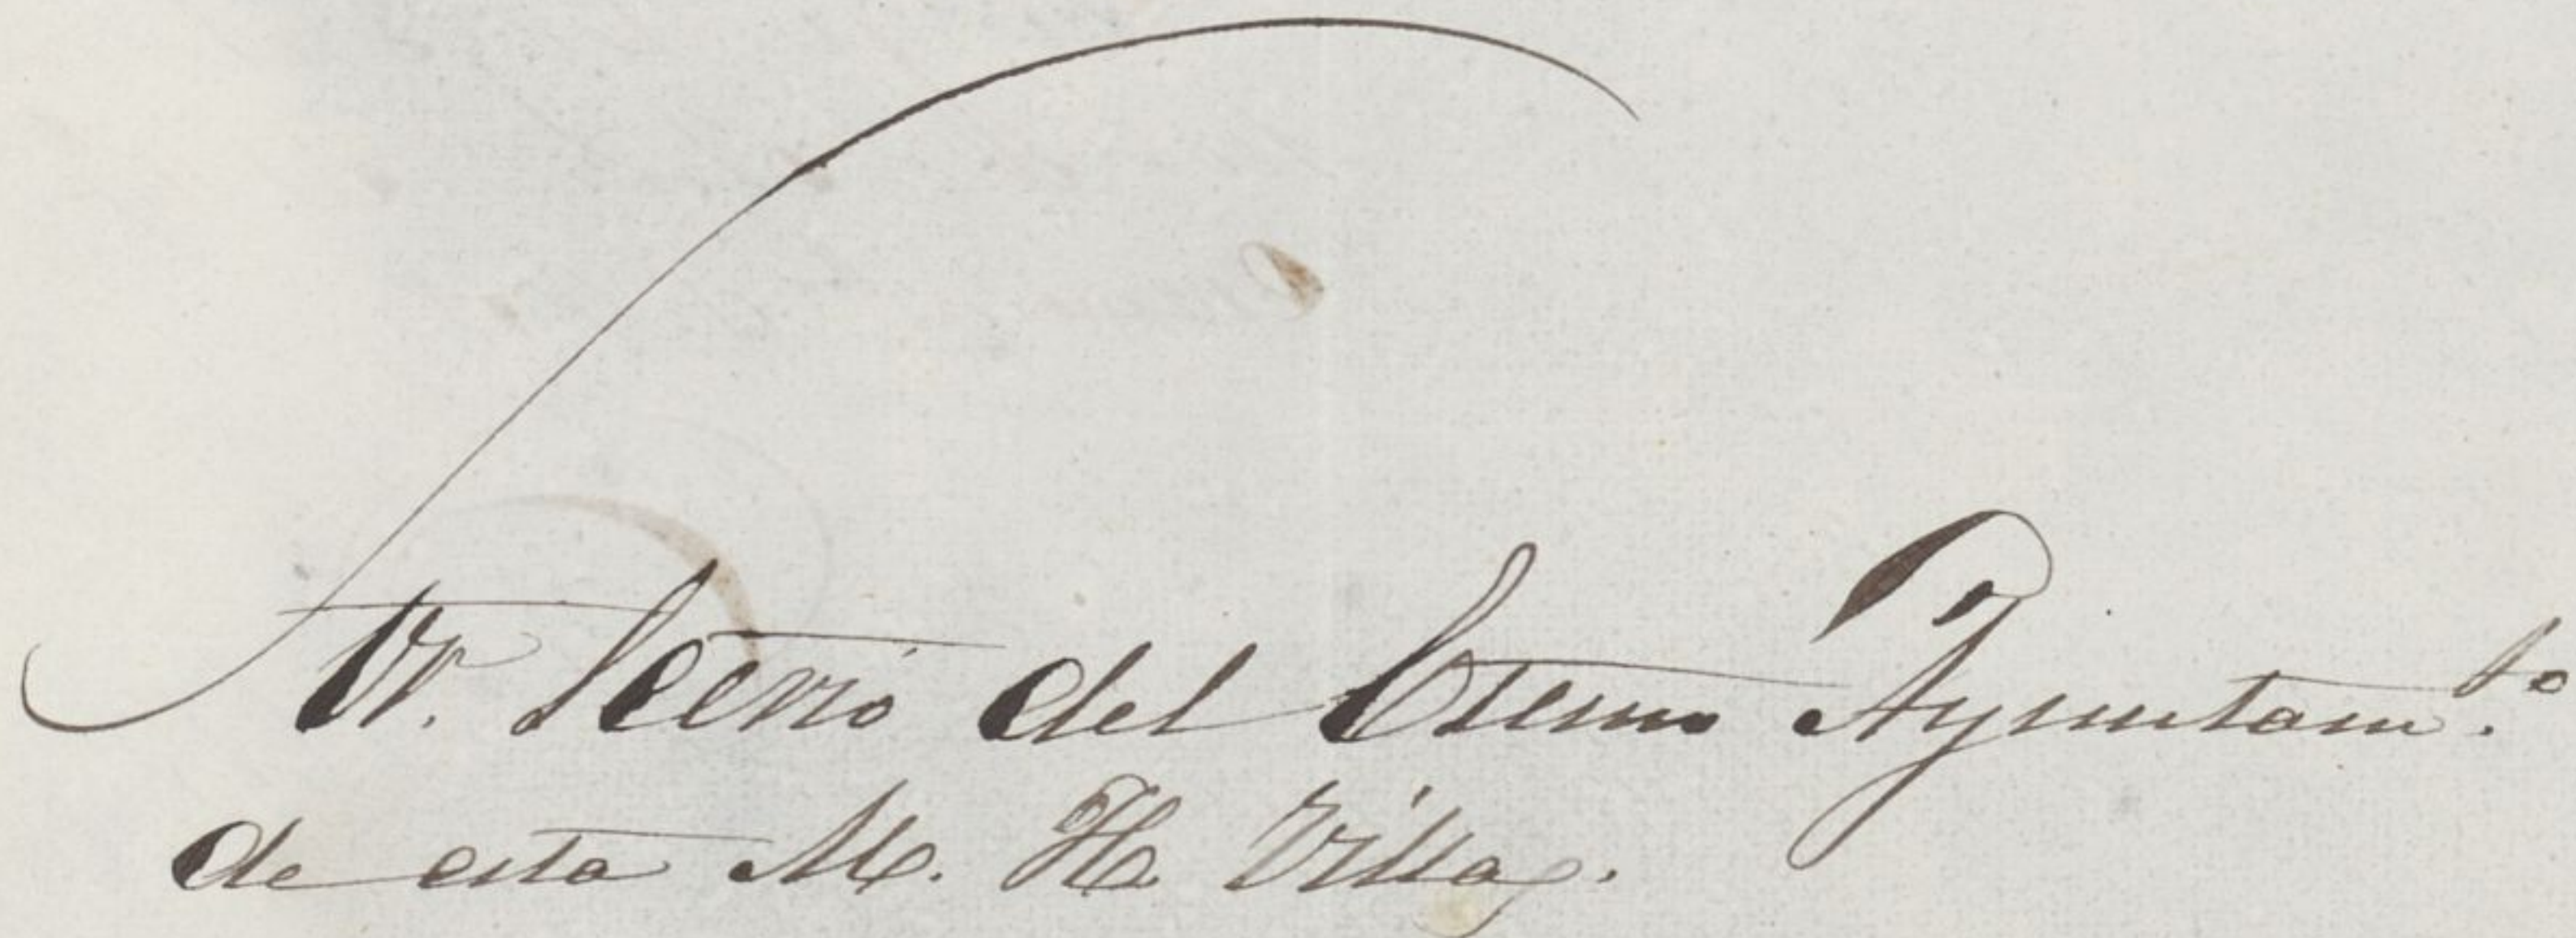 Sr. Secrio del Exemo Ayuntam.to
de esta M. H. Villa.